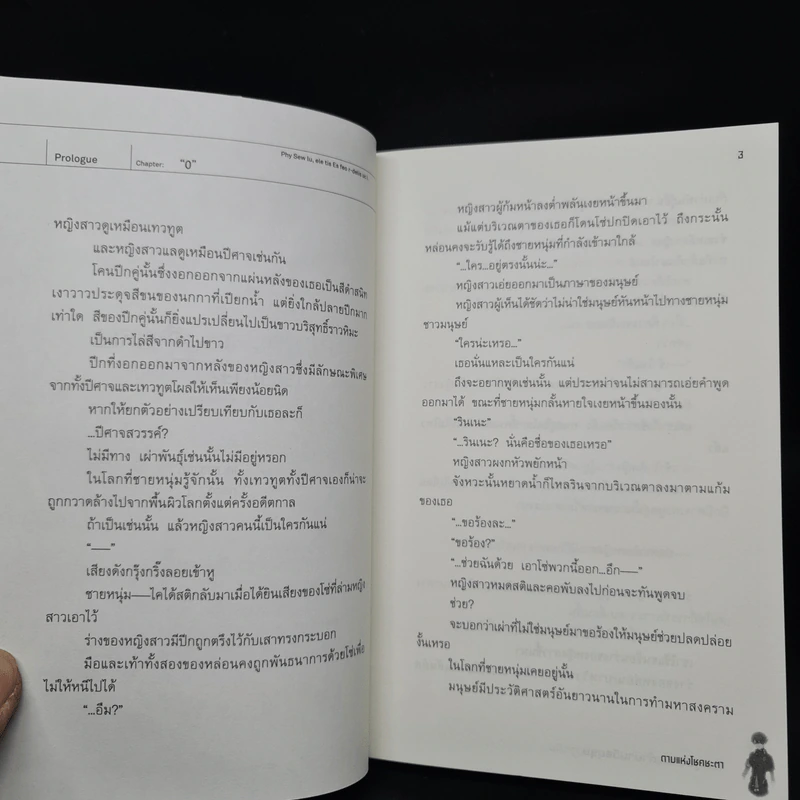 Prologue
Chapter:
"0"
หญิงสาวดูเหมือนเทวทูต
และหญิงสาวแลดูเหมือนปีศาจเช่นกัน
โคนปีกคู่นั้นซึ่งงอกออกจากแผ่นหลังของเธอเป็นสีดำสนิท
เงาวาวประดุจสีขนของนกกาที่เปียกน้ำ แต่ยิ่งใกล้ปลายปีกมาก
เท่าใด สีของปีกคู่นั้นก็ยิ่งแปรเปลี่ยนไปเป็นขาวบริสุทธิ์ราวหิมะ
เป็นการไล่สีจากดำไปขาว
ปีกที่งอกออกมาจากหลังของหญิงสาวซึ่งมีลักษณะพิเศษ
จากทั้งปีศาจและเทวทูตโผล่ให้เห็นเพียงน้อยนิด
หากให้ยกตัวอย่างเปรียบเทียบกับเธอละก็
...ปีศาจสวรรค์?
ไม่มีทาง เผ่าพันธุ์เช่นนั้นไม่มีอยู่หรอก
ในโลกที่ชายหนุ่มรู้จักนั้น ทั้งเทวทูตทั้งปีศาจเองก็น่าจะ
ถูกกวาดล้างไปจากพื้นผิวโลกตั้งแต่ครั้งอดีตกาล
ถ้าเป็นเช่นนั้น แล้วหญิงสาวคนนี้เป็นใครกันแน่
"——"
เสียงดังกรุ๊งกริ๊งลอยเข้าหู
ชายหนุ่ม——ไคได้สติกลับมาเมื่อได้ยินเสียงของโซ่ที่ล่ามหญิง
สาวเอาไว้
ร่างของหญิงสาวมีปีกถูกตรึงไว้กับเสาทรงกระบอก
มือและเท้าทั้งสองของหล่อนคงถูกพันธนาการด้วยโซ่เพื่อ
ไม่ให้หนีไปได้
"...อืม?"
3
หญิงสาวผู้ก้มหน้าลงต่ำพลันเงยหน้าขึ้นมา
แม้แต่บริเวณตาของเธอก็โดนโซ่ปกปิดเอาไว้ ถึงกระนั้น
หล่อนคงจะรับรู้ได้ถึงชายหนุ่มที่กำลังเข้ามาใกล้
"...ใคร...อยู่ตรงนั้นน่ะ..."
หญิงสาวเอ่ยออกมาเป็นภาษาของมนุษย์
หญิงสาวผู้เห็นได้ชัดว่าไม่น่าใช่มนุษย์หันหน้าไปทางชายหนุ่ม
ชาวมนุษย์
"ใครน่ะเหรอ..."
เธอนั่นแหละเป็นใครกันแน่
ถึงจะอยากพูดเช่นนั้น แต่ประหม่าจนไม่สามารถเอ่ยคำพูด
ออกมาได้ ขณะที่ชายหนุ่มกลั้นหายใจเงยหน้าขึ้นมองนั้น
"รินเนะ"
"...รินเนะ? นั่นคือชื่อของเธอเหรอ"
หญิงสาวผงกหัวพยักหน้า
จังหวะนั้นหยาดน้ำก็ไหลรินจากบริเวณตาลงมาตามแก้ม
ของเธอ
"...ขอร้องละ..."
"ขอร้อง?"
"...ช่วยฉันด้วย เอาโซ่พวกนี้ออก...อึก——"
หญิงสาวหมดสติและคอพับลงไปก่อนจะทันพูดจบ
ช่วย?
จะบอกว่าเผ่าที่ไม่ใช่มนุษย์มาขอร้องให้มนุษย์ช่วยปลดปล่อย
งั้นเหรอ
ในโลกที่ชายหนุ่มเคยอยู่นั้น
มนุษย์มีประวัติศาสตร์อันยาวนานในการทำมหาสงคราม
ดาบแห่งโชคชะตา